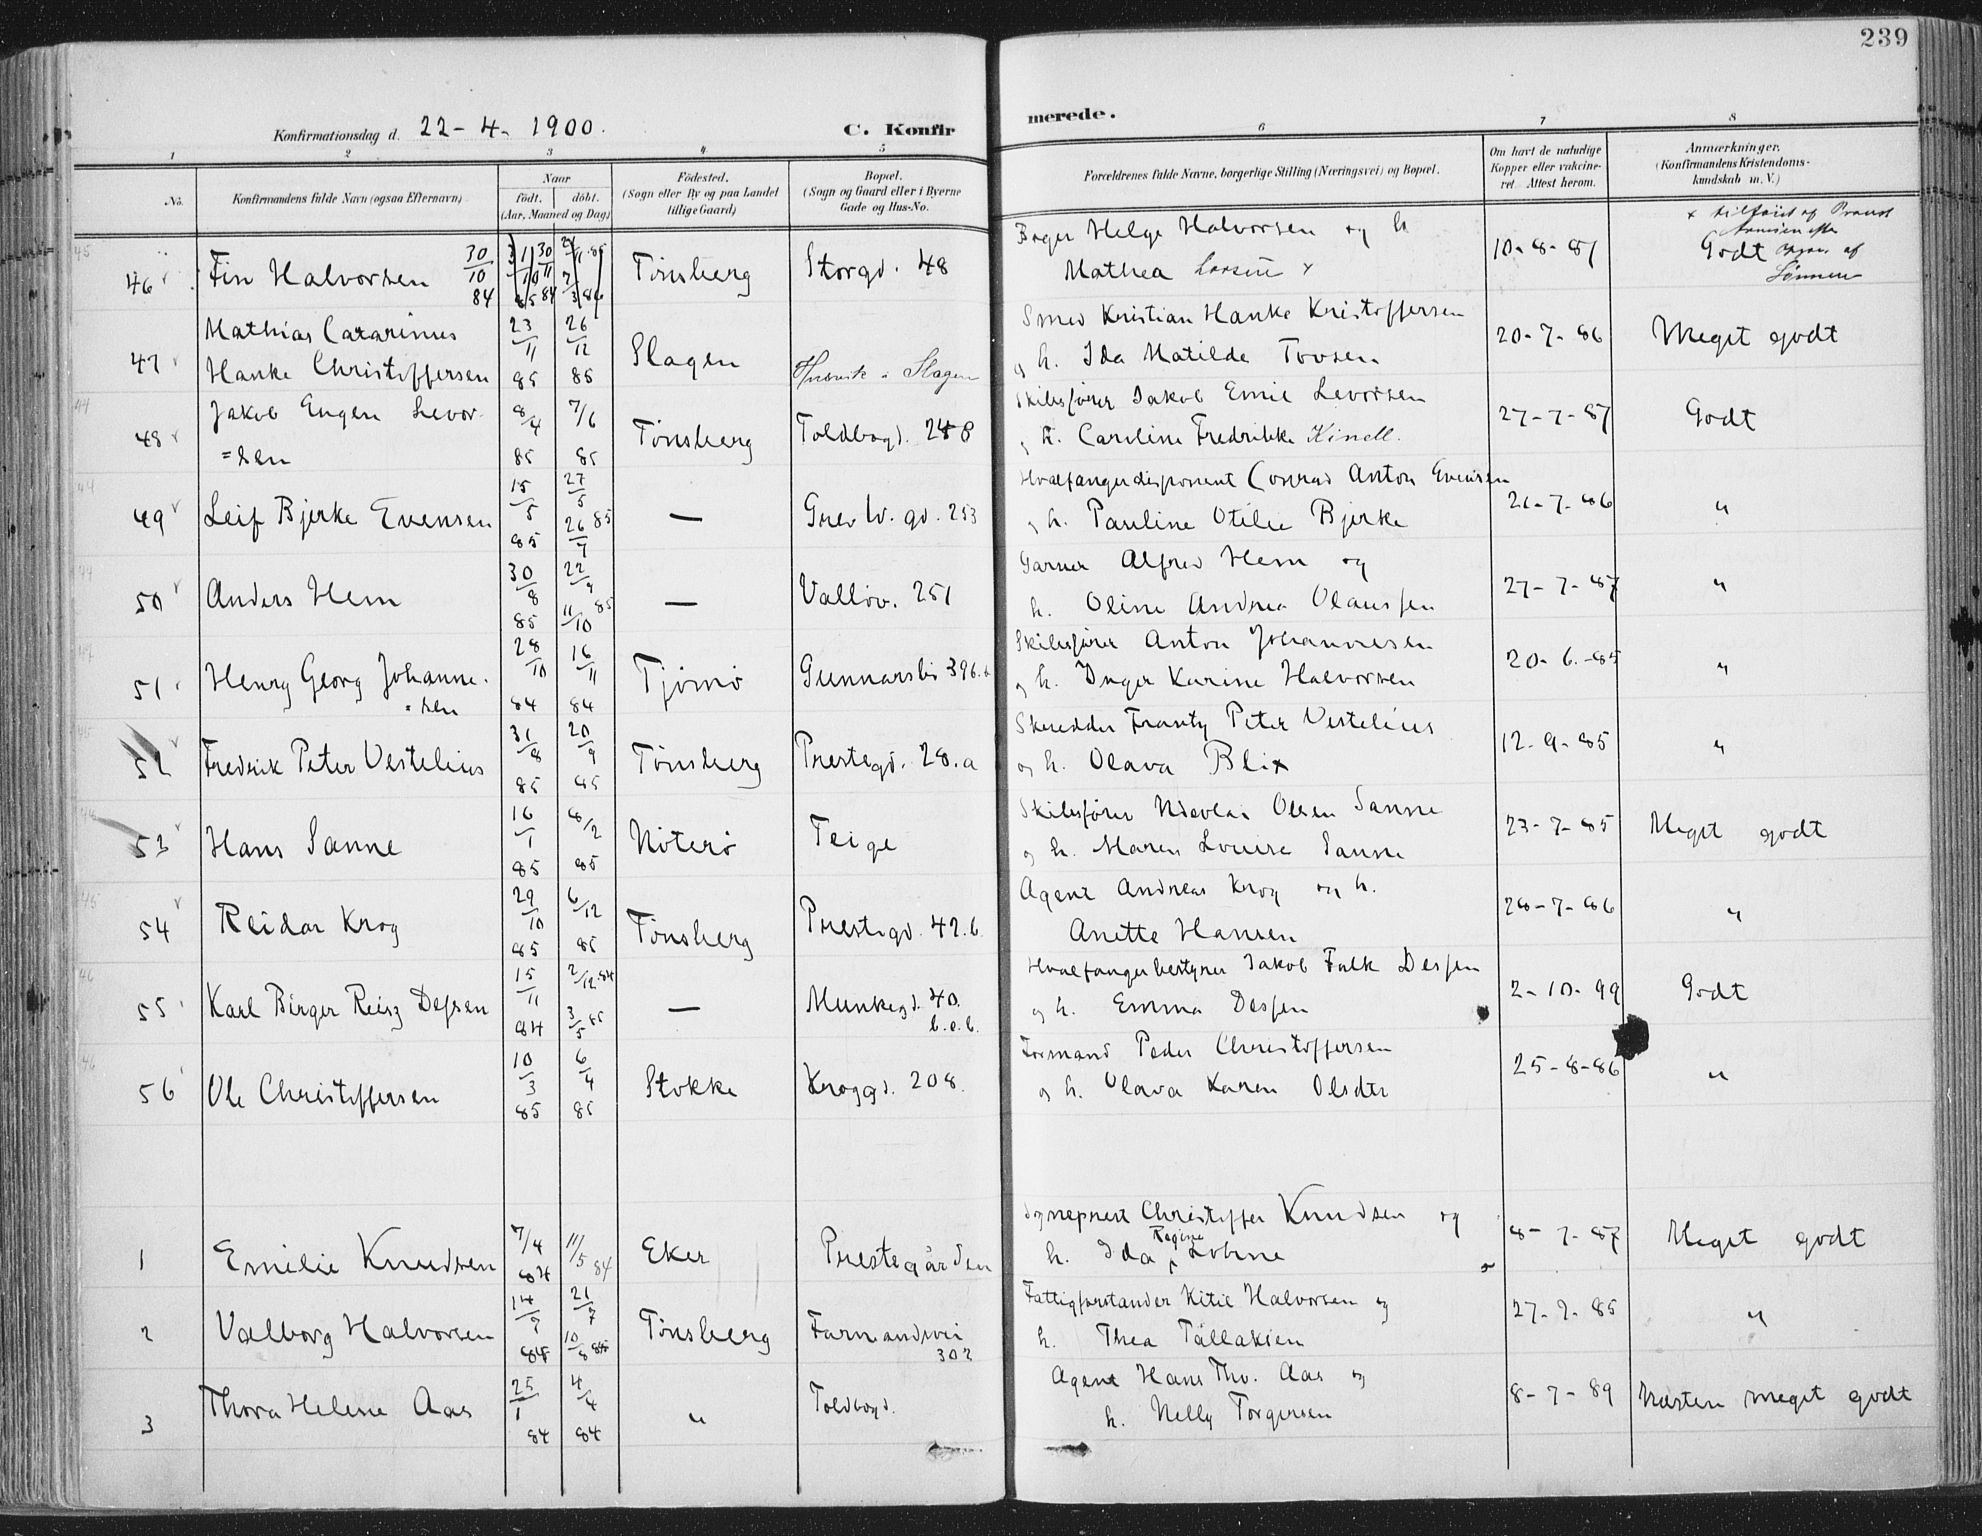 239
Konfirmationsdag d. 22-4-1900.
C. Konfirmerede.
1 2 3 4 5 6 7 8
No.
Konfirmandens fulde Navn (ogsaa Efternavn)
Naar
født. døbt.
(Aar, Maaned og Dag)
Födested.
(Sogn eller By og paa Landet tillige Gaard)
Bopæl.
(Sogn og Gaard eller i Byerne Gade og Hus-No.
Forældrenes fulde Navne, borgerlige Stilling (Næringsvei) og Bopæl.
Om havt de naturlige Kopper eller vakcineret. Attest herom.
Anmærkninger.
(Konfirmandens Kristendomskundskab m. V.)
46 Fin Halvorsen 30/10 84 Tönsberg Storgd. 48
Bager Helge Halvorsen og h.
Mathea Larsen x
10-8-87 Godt
47 Mathias Catarinus
Hanke Christoffersen
23/11 85 26/12 85 Slagen Husvik i Slagen
Smed Kristian Hanke Kristoffersen
og h. Ida Matilde Tovsen
20-7-86 Meget godt
48 Jakob Eugen Levor=
=sen
8/4 85 7/6 85 Tönsberg Toldbogd. 248
Skibsfører Jakob Emil Levorsen
og h. Caroline Fredrikke Kinell.
27-7-87 Godt
49 Leif Bjerke Evensen 15/5 85 27/5 26/7 85 — Grev W. gd. 253
Hvalfangerdisponent Conrad Anton Evensen
og h. Pauline Otilie Bjerke
21-7-86 "
50 Anders Hem 30/8 85 22/9 11/10 85 — Vallöv. 251
Garver Alfred Hem og
h. Oline Andrea Olaussen
27-7-87 "
51 Henry Georg Johanne=
=sen
28/10 84 16/11 84 Tjömö Gunnarsbö 396.
Skibsfører Anton Johannesen
og h. Inger Karine Halvorsen
20-6-85 "
52 Fredrik Peter Vestelius 31/8 85 20/9 85 Tönsberg Prestegd. 28.a
Skredder Frantz Peter Vestelius
og h. Olava Blix
12-9-85 "
53 Hans Sanne 16/1 85 8/2 85 Nöterö Teige
Skibsfører Nicolai Olsen Sanne
og h. Maren Louise Sanne
23-7-85 Meget godt
54 Reidar Krog 29/10 85 6/12 85 Tönsberg Prestegd. 42.b.
Agent Andreas Krog og h.
Anette Hansen
28-7-86 "
55 Karl Birger Reisz Dessen 15/11 84 2/12 84 3/5 85 — Munkegd. 40.
b.c.b.
Hvalfangerbestyrer Jakob Falk Dessen
og h. Emma Dessen
2-10-99 Godt
56 Ole Christoffersen 10/3 85 6/4 85 Stokke Kroggd. 208.
Formand Peder Christoffersen
og h. Olava Karen Olsdtr
25-8-86 "
1 Emilie Knudsen 7/4 84 11/5 84 Eker Prestegården
Sogneprest Christoffer Knudsen og
h. Ida Regine Lovine
8-7-87 Meget godt
2 Valborg Halvorsen 14/7 84 21/7 10/8 Tönsberg Farmandsvei
302
Fattigforstander Kitil Halvorsen og
h. Thea Tallaksen
27-7-85 "
3 Thora Helene Aas 25/1 84 4/4 84 " Toldbogd.
Agent Hans Thv. Aas og
h. Nelly Torgersen
8-7-89 Næsten meget godt